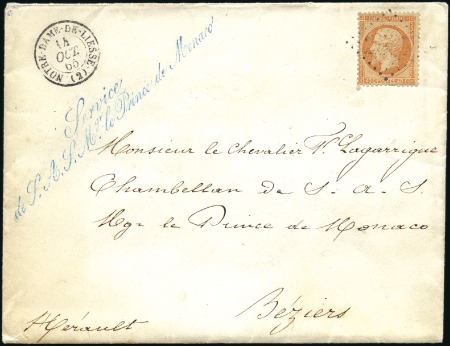 NOTRE-DAME-DE-LIESSE (2)
14
OCT.
65
Service
de S. A. S. Mgr. le Prince de Monaco
Monsieur le Chevalier Vr. Lagarrigue
Chambellan de S. A. S.
Mgr le Prince de Monaco
Béziers
Hérault